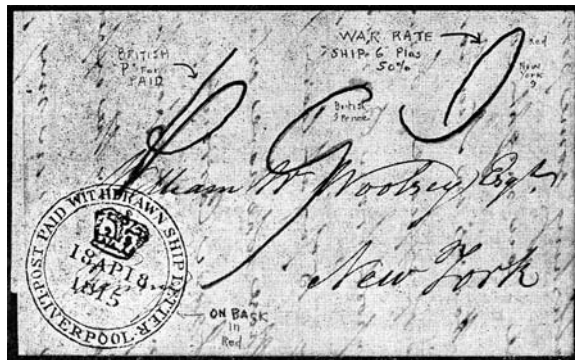 BRITISH
P For
PAID
WAR RATE
SHIP 6 Plus
50%
Red
New
York
9
British
9 Pence
9
William W Woolsey, Esqr
New York
POST PAID WITHDRAWN SHIP LETTER
18AP18
1815
LIVERPOOL
ON BACK
in
Red